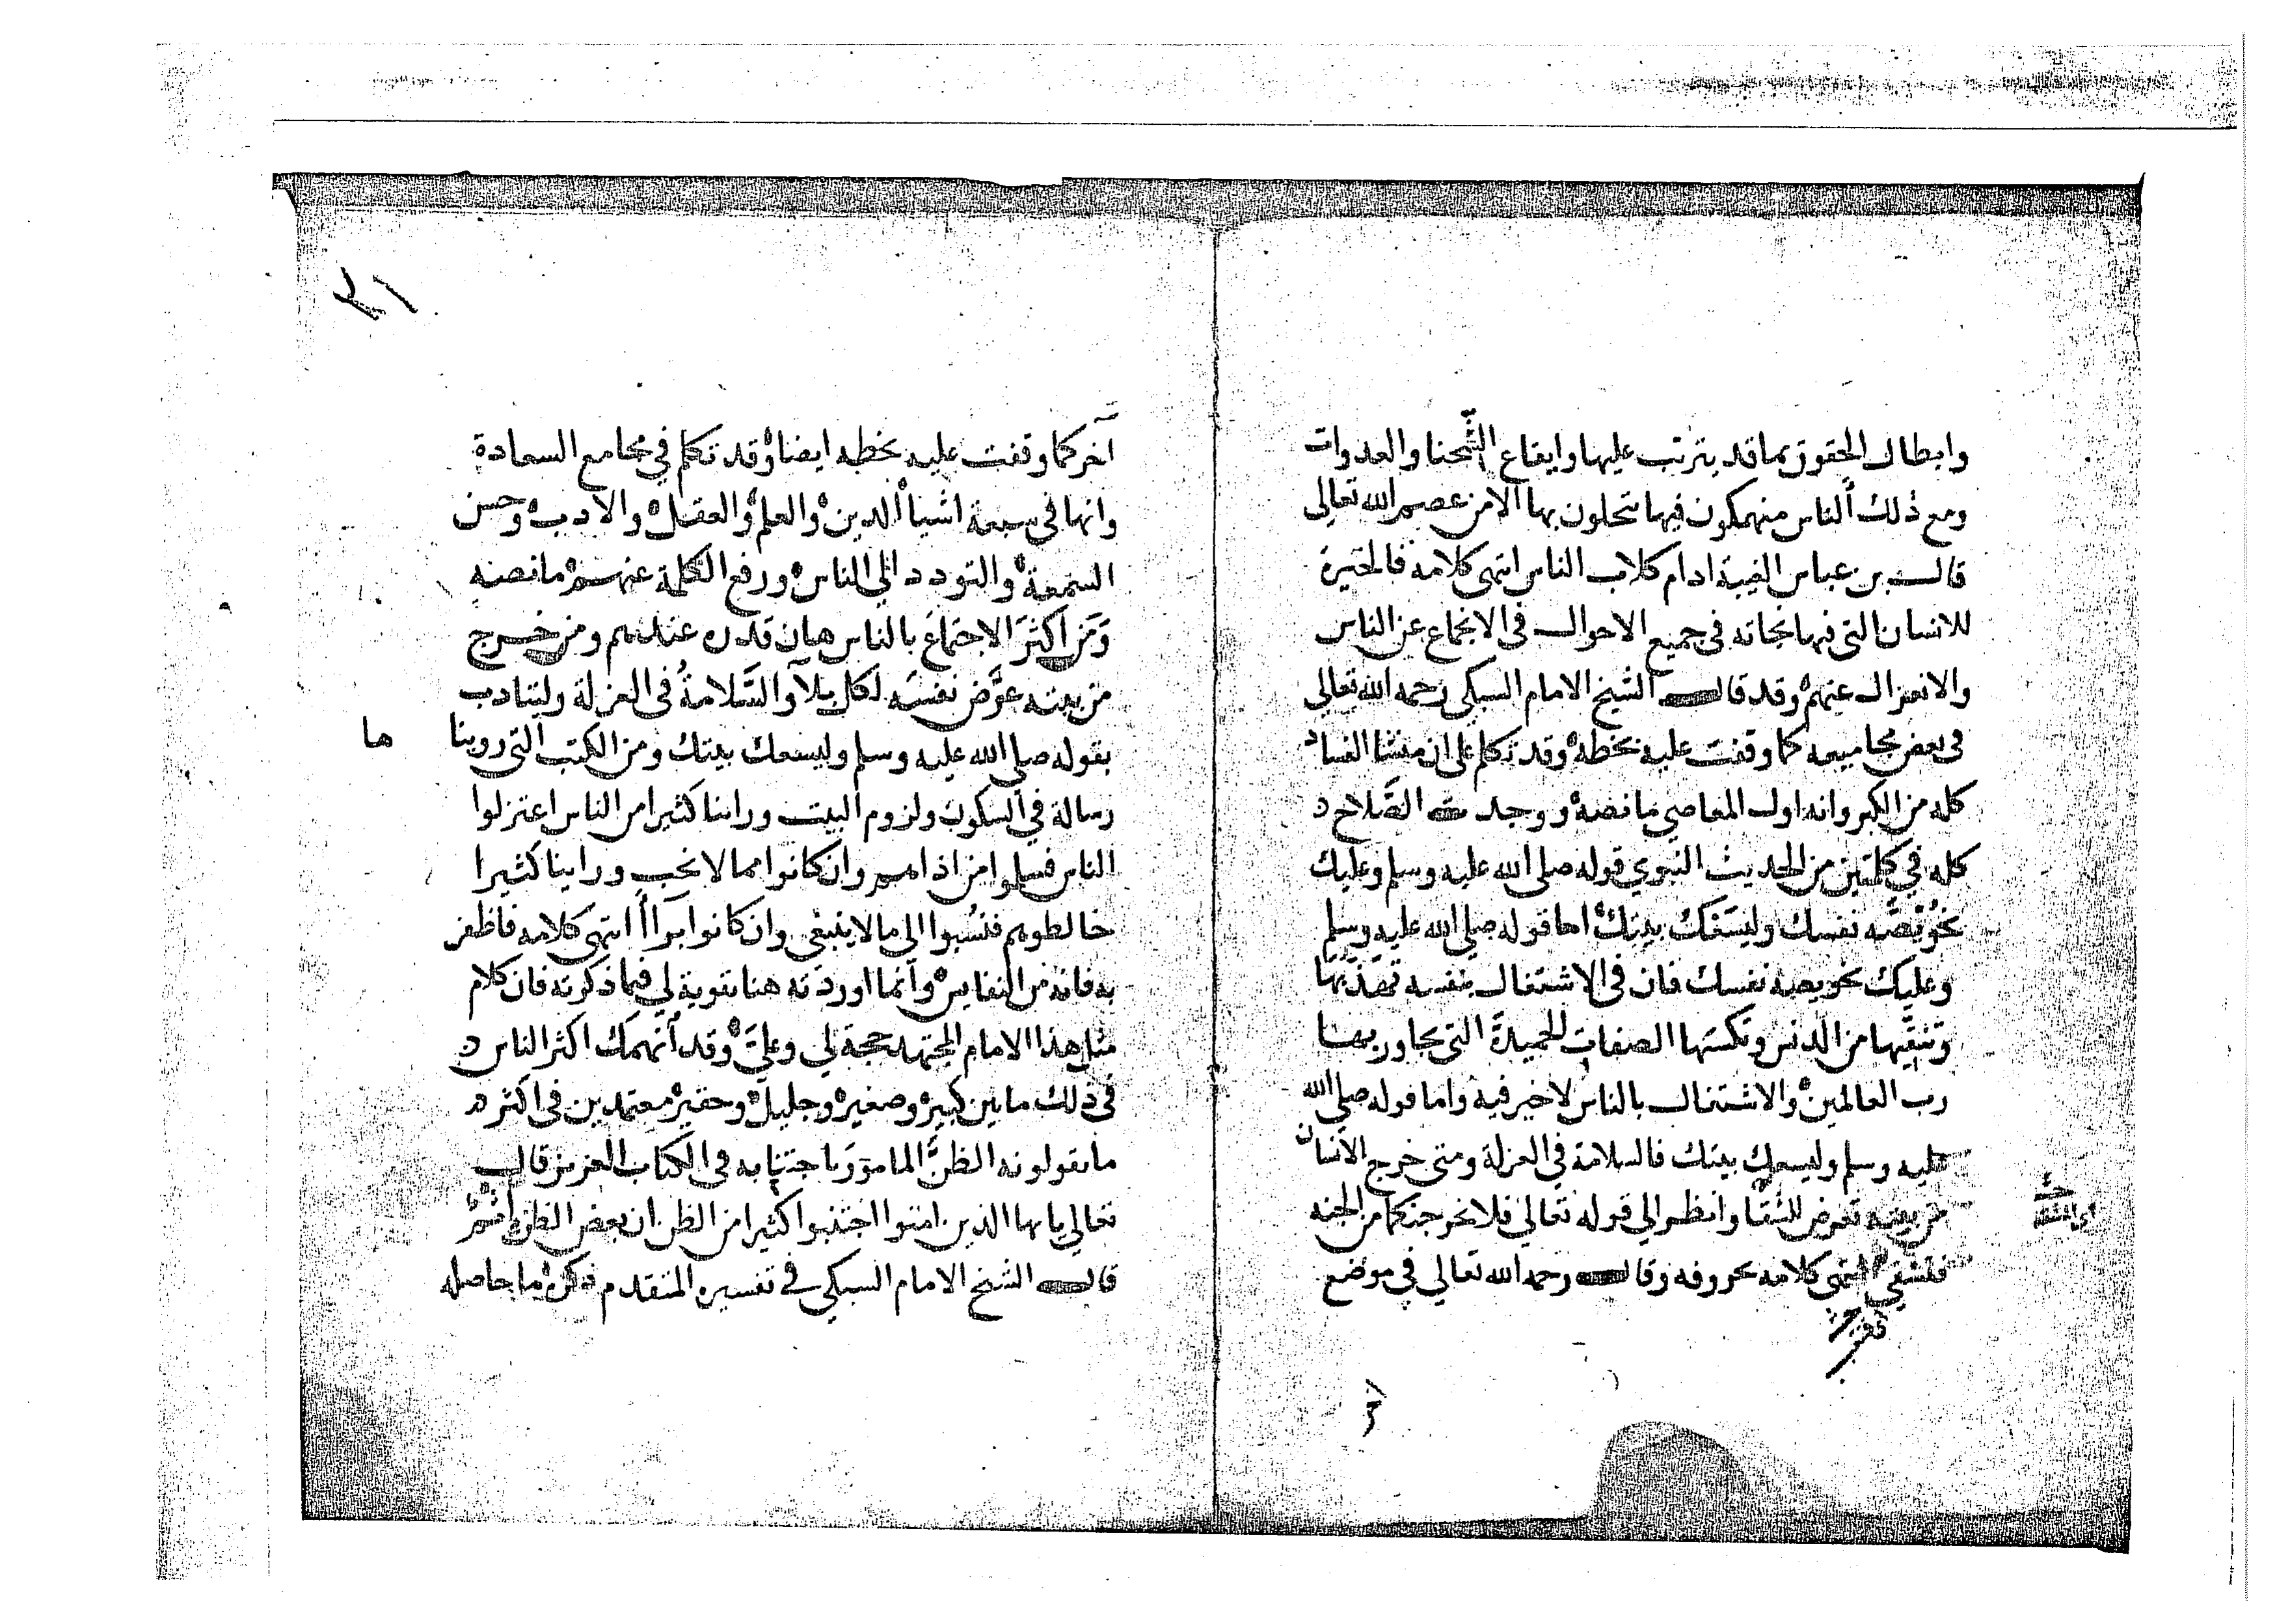 وابطال الحقوق بما قد يترتب عليها وايقاع الشحنا والعدوات
ومع ذلك الناس منهمكون فيها يتحلون بها الا من عصم الله تعالى
قال بن عباس الغيبة ادام كلاب الناس انتهى كلامه فالخيرة
للانسان التى فيها نجاته فى جميع الاحوال فى الانجماع عن الناس
والانعزال عنهم وقد قال الشيخ الامام السبكى رحمه الله تعالى
فى بعض مجاميعه كما وقفت عليه بخطه وقد تكلم على ان منشا الفساد
كله من الكبر وانه اول المعاصي ما نصه ووجدت الصَّلاح
كله في كلمتين من الحديث النبوي قوله صلى الله عليه وسلم وعليك
بخُوَيْصَّه نفسك وليَسَعْكَ بيتك اما قوله صلى الله عليه وسلم
وعليك بخويصه نفسك فان فى الاشتغال بنفسه تهذيبها
وتنقيها من الدنس وتكسبها الصفات الحميدة التى يجاور بها
رب العالمين والاشتغال بالناس لا خير فيه واما قوله صلى الله
عليه وسلم وليسعك بيتك فالسلامة في العزلة ومتى خرج الانسان
من بيته تعرض للشقا وانظر الي قوله تعالي فلا يخرجنكما من الجنه
فتشقي انتهى كلامه بحروفه وقال رحمه الله تعالي فى موضع
٣١
آخر كما وقفت عليه بخطه ايضا وقد تكلم في مجامع السعادة
وانها فى سبعة اشيا الدين والعلم والعقل والادب وحسن
السمعة والتودد الي الناس ورفع الكلمة عنهم ما نصه
وَمَن اكثرَ الاجتماعَ بالناس هان قدره عندهم ومن خرج
من بيته عرَّض نفسَه لكل بلآ والسَّلامةُ فى العزلة وليتادب
بقوله صلى الله عليه وسلم وليسعك بيتك ومن الكتب التى روينا
ها
رسالة في السكوت ولزوم البيت وراينا كثيرا من الناس اعتزلوا
الناس فسلموا من اذاهم وان كانوا مما لا يحب وراينا كثيرا
خالطوهم فنسُبوا الى ما لا ينبغى وان كانوا ابرآاً انتهى كلامه فاظفر
به فانه من النفايس وانما اوردته هنا تقوية لي فيما ذكرته فان كلام
مثل هذا الامام المجتهد حجة لي وعليَّ وقد انهمك اكثر الناس
فى ذلك ما بين كبير وصغير وجليل وحقير معتمدين فى اكثر
ما يقولونه الظنَّ المامورَ باجتنابه فى الكتاب العزيز قال
تعالي يايها الذين امنوا اجتنبوا كثيرا من الظن ان بعض الظن اثم
قال الشيخ الامام السبكى في تفسيره المتقدم ذكره ما حاصله